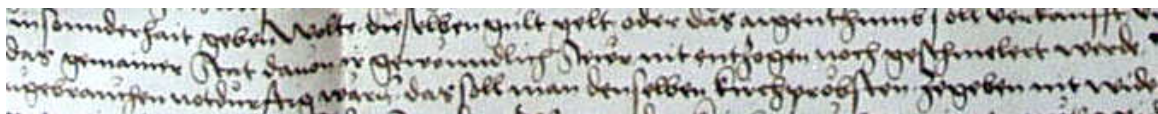 insonnderhait geben wolte dieselben gult gelt oder das aigenthumb soll verkaufft
das gemainer Stat dauon ir gewonndlich Stewr nit entzogen noch geschmelert werde
zugebrauchen notdurfftig warn das soll man denselben kirchprobsten zegeben nit wide